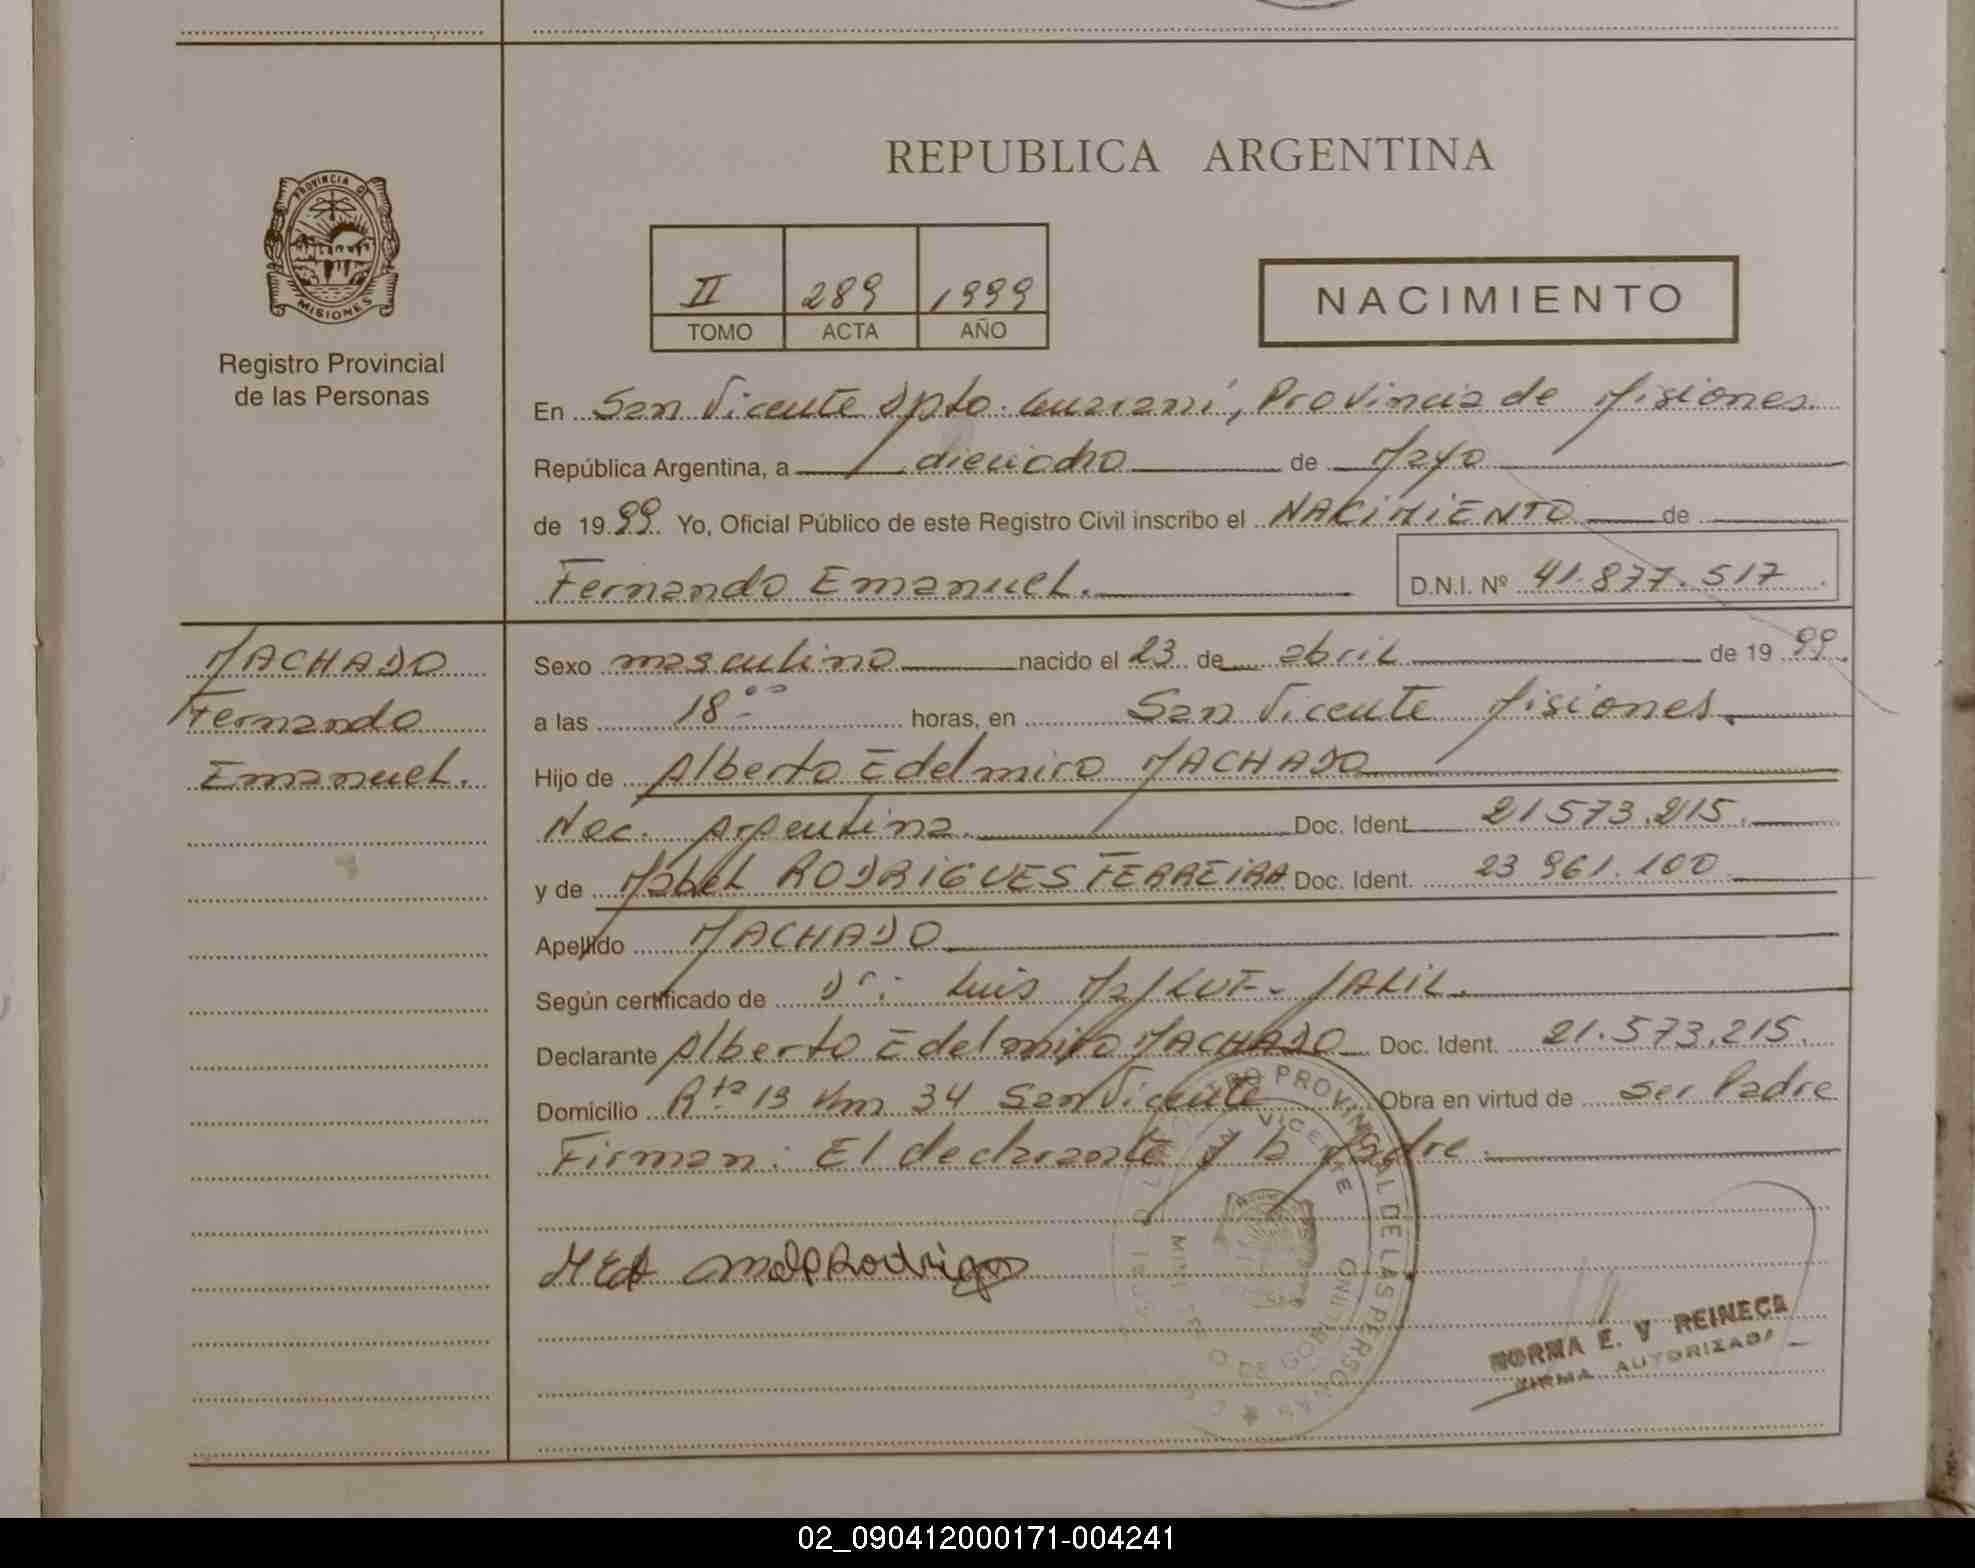 REPUBLICA ARGENTINA
PROVINCIA DE
MISIONES
Registro Provincial
de las Personas
II 289 1999
TOMO ACTA AÑO
NACIMIENTO
En San Vicente Dpto. Guaraní, Provincia de Misiones
República Argentina, a dieciocho de Mayo
de 1999 Yo, Oficial Público de este Registro Civil inscribo el NACIMIENTO de
Fernando Emanuel. D.N.I. Nº 41.877.517
MACHADO
Fernando
Emanuel.
Sexo masculino nacido el 23 de abril de 1999.
a las 18 00 horas, en San Vicente Misiones.
Hijo de Alberto Edelmiro MACHADO
Nac. Argentina. Doc. Ident. 21573.215.
y de Mabel RODRIGUES FERREIRA Doc. Ident. 23 961.100
Apellido MACHADO
Según certificado de Dr: Luis JALIL.
Declarante Alberto Edelmiro MACHADO Doc. Ident. 21.573.215.
Domicilio Rta 13 Km 34 San Vicente Obra en virtud de ser Padre
Firman: El declarante y la Madre.
MEA
REGISTRO PROVINCIAL DE LAS PERSONAS
SAN VICENTE
NORMA E. V REINECA
FIRMA AUTORIZADA
02_090412000171-004241